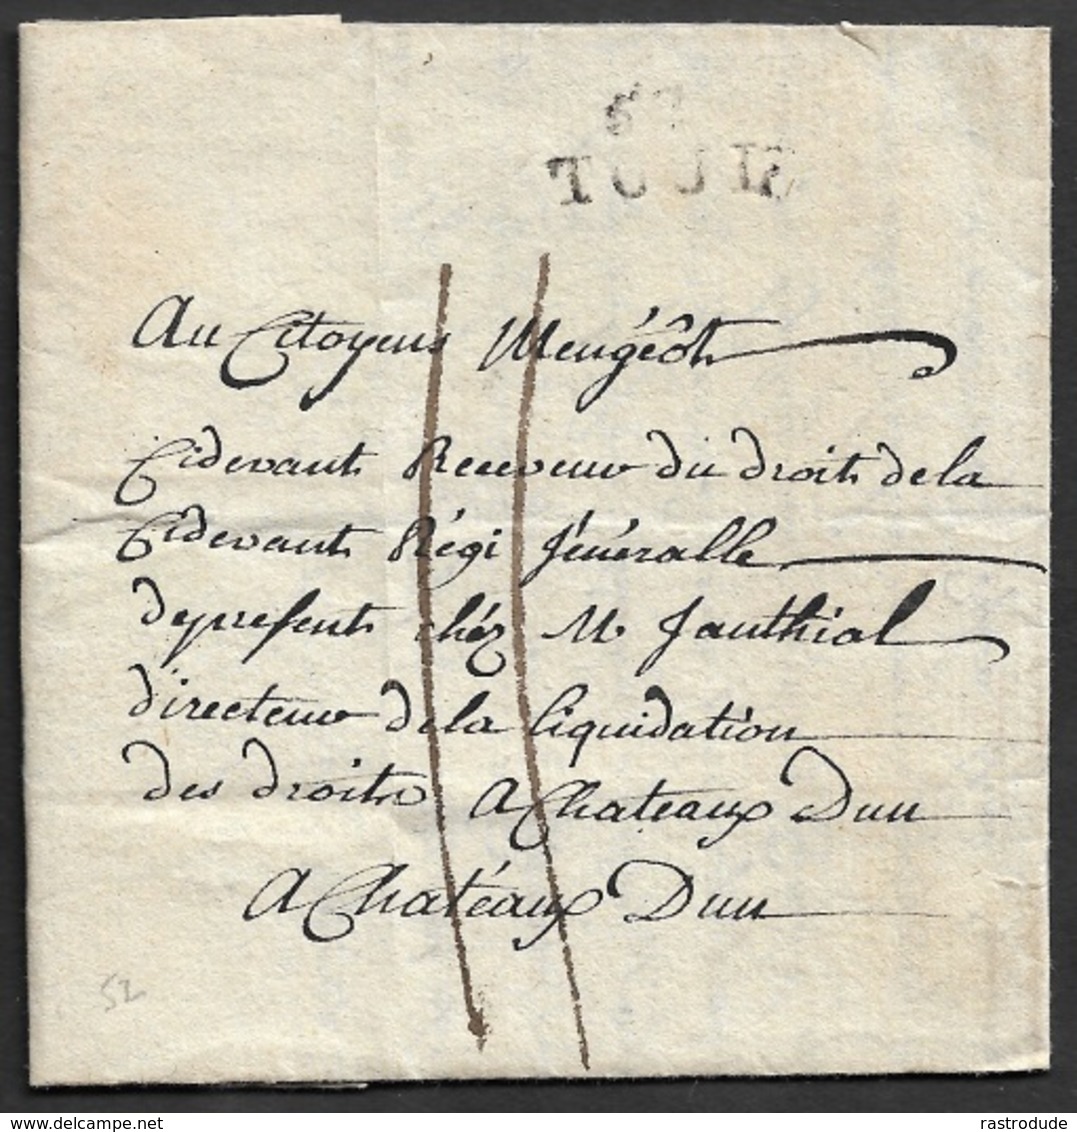 TOUL
Au Citoyens Meugéot
Cidevant Receveur du droit de la
Cidevant Régi Jénéralle
depresent chéz M Janthial
directeur de la liquidation
des droits a Chateaux Dun
A Chatéaux Dun
52
delcampe.net
rastrodude